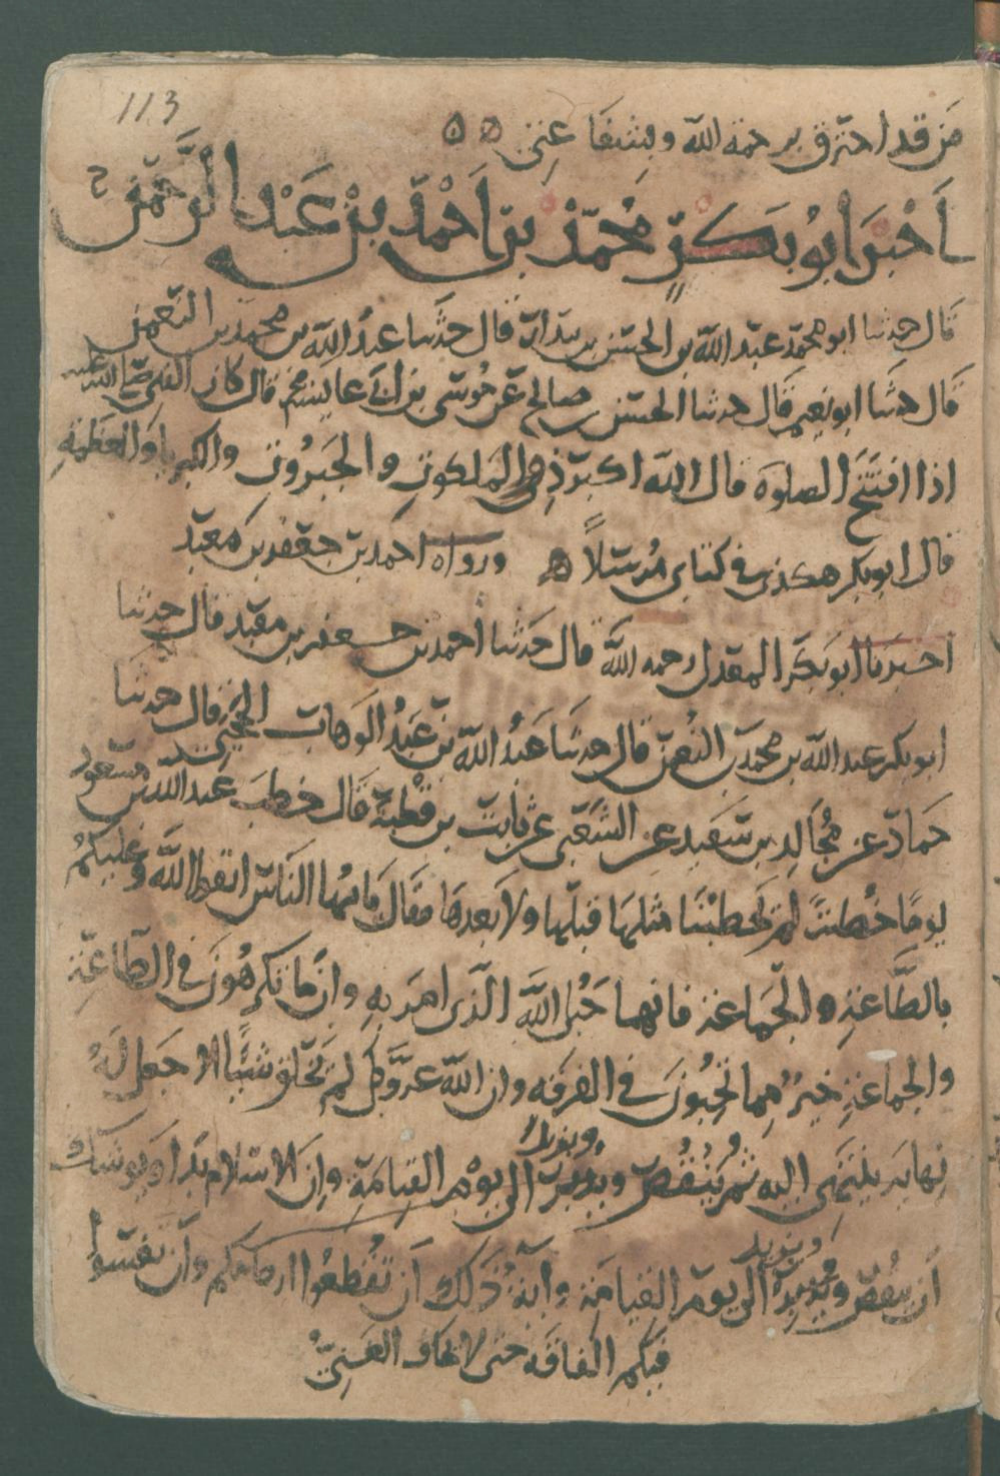 113
من قد احترق برحمة الله ويشفا عني ه ه
اخبرنا ابو بكر محمد بن احمد بن عبد الرحمن
قال حدثنا ابو محمد عبد الله بن الحسن بن بندار قال حدثنا عبد الله بن محمد بن النعمن
قال حدثنا ابو نعيم قال حدثنا الحسن بن صالح عن موسى بن ابي عايشه قال كان النبي صلى الله عليه
اذا افتتح الصلوة قال الله اكبر ذي الملكوت والجبروت والكبريا والعظمه
قال ابو بكر هكذى في كتابي مرسلا ه ورواه احمد بن جعفر بن معبد
اخبرنا ابو بكر المعدل رحمه الله قال حدثنا احمد بن جعفر بن معبد قال حدثنا
ابو بكر عبد الله بن محمد بن النعمن قال حدثنا عبد الله بن عبد الوهاب الحجبي قال حدثنا
حماد عن مجالد بن سعيد عن الشعبي عن ثابت بن قطبة قال خطب عبد الله بن مسعود
يوما خطبة لم يخطبنا مثلها قبلها ولا بعدها فقال يا ايها الناس اتقوا الله وعليكم
بالطاعة والجماعة فانهما حبل الله الذى امر به وان ما تكرهون في الطاعة
والجماعة خير مما تحبون في الفرقه وان الله عز وجل لم يخلق شيئا الا جعل له
نهاية ينتهي اليه ثم ينقص ويدبر الى يوم القيامة وان الاسلام بدا ويوشك
ان ينقص الى يوم القيامة واية ذلك ان تقطعوا ارحامكم وان تفشوا
فيكم الفاقه حتى لا يخاف الغني